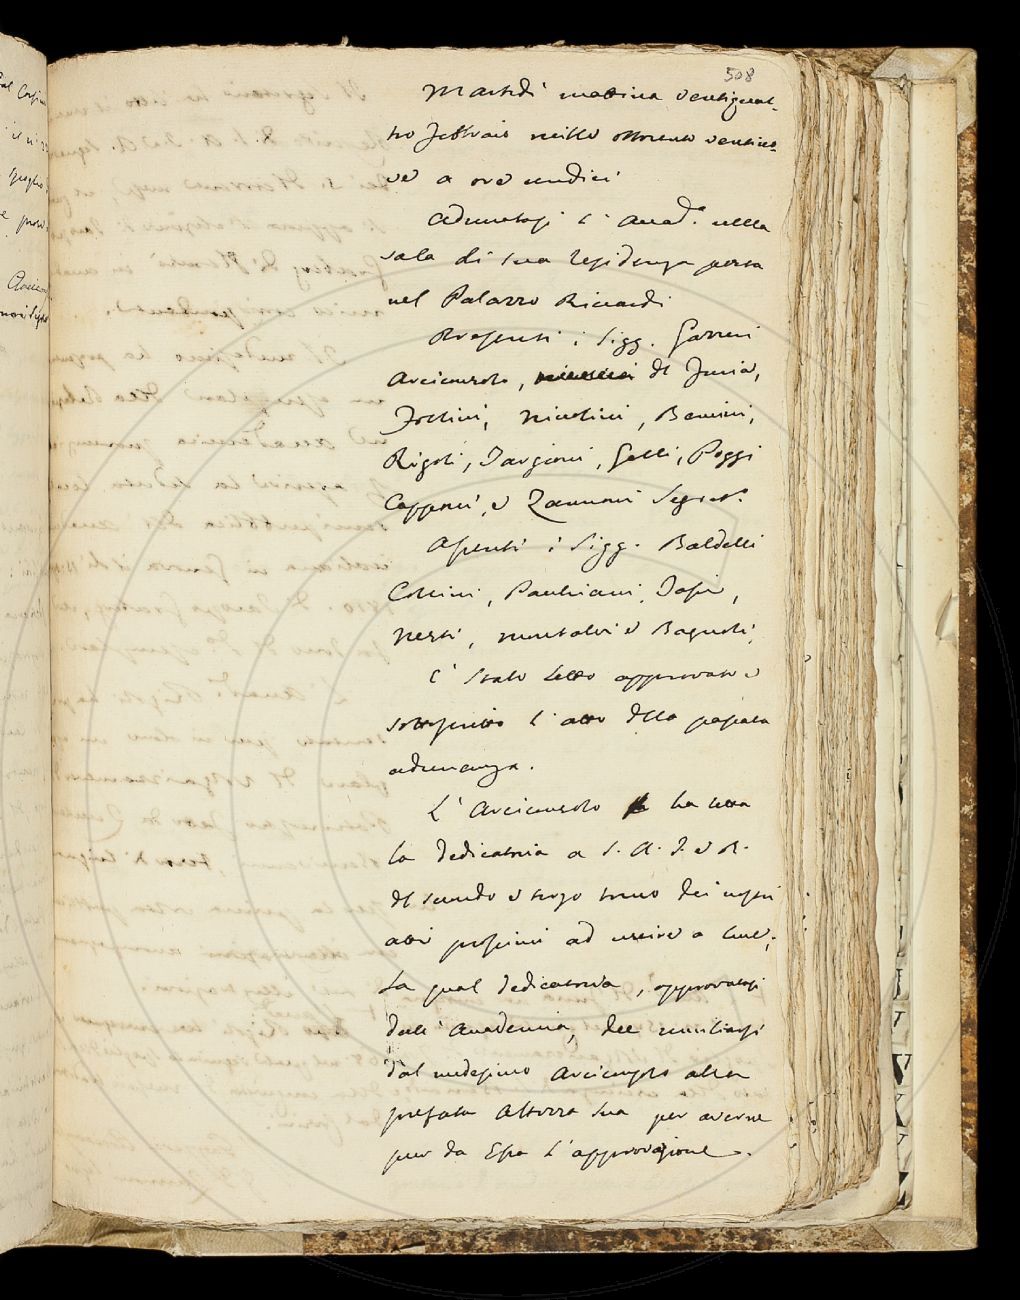 508
Martedì mattina ventiquat-
tro Febbraio mille ottocento ventino-
ve a ore undici
Adunatasi l'Accad.ª nella
sala di sua residenza posta
nel Palazzo Riccardi
Presenti i Sigg. Gazzeri
Arciconsolo, del Furia,
Follini, Niccolini, Bencini,
Rigoli, Targioni, Gelli, Poggi
Capponi, e Zannoni Segret.º
Assenti i Sigg. Baldelli
Collini, Pauliani,
Nesti, Montalvi e Bagnoli,
E' stato letto approvato e
sottoscritto l'atto della passata
adunanza.
L'Arciconsolo ha letta
la Dedicatoria a S. A. I. e R.
del secondo e terzo tomo dei nostri
atti prossimi ad uscire a luce;
La qual dedicatoria, approvatasi
dall'Accademia, dee umiliarsi
dal medesimo Arciconsolo alla
prefata Altezza Sua per averne
pur da Essa l'approvazione.